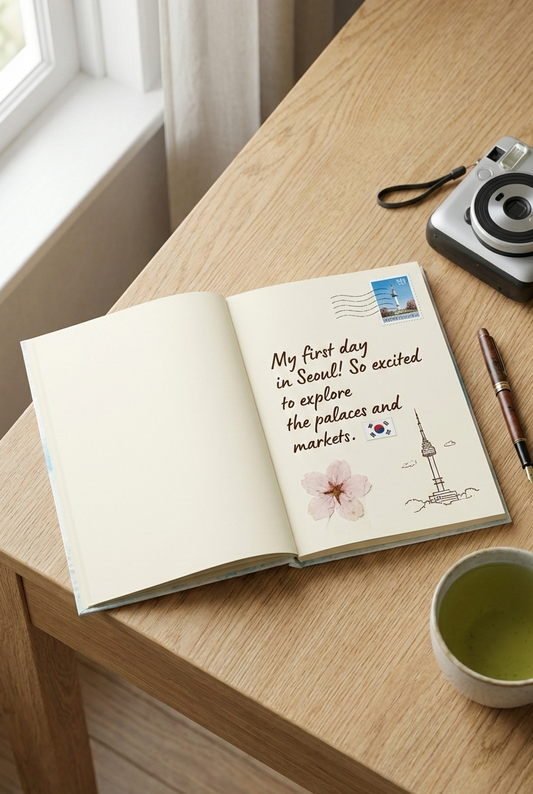 My first day
in Seoul! So excited
to explore
the palaces and
markets.